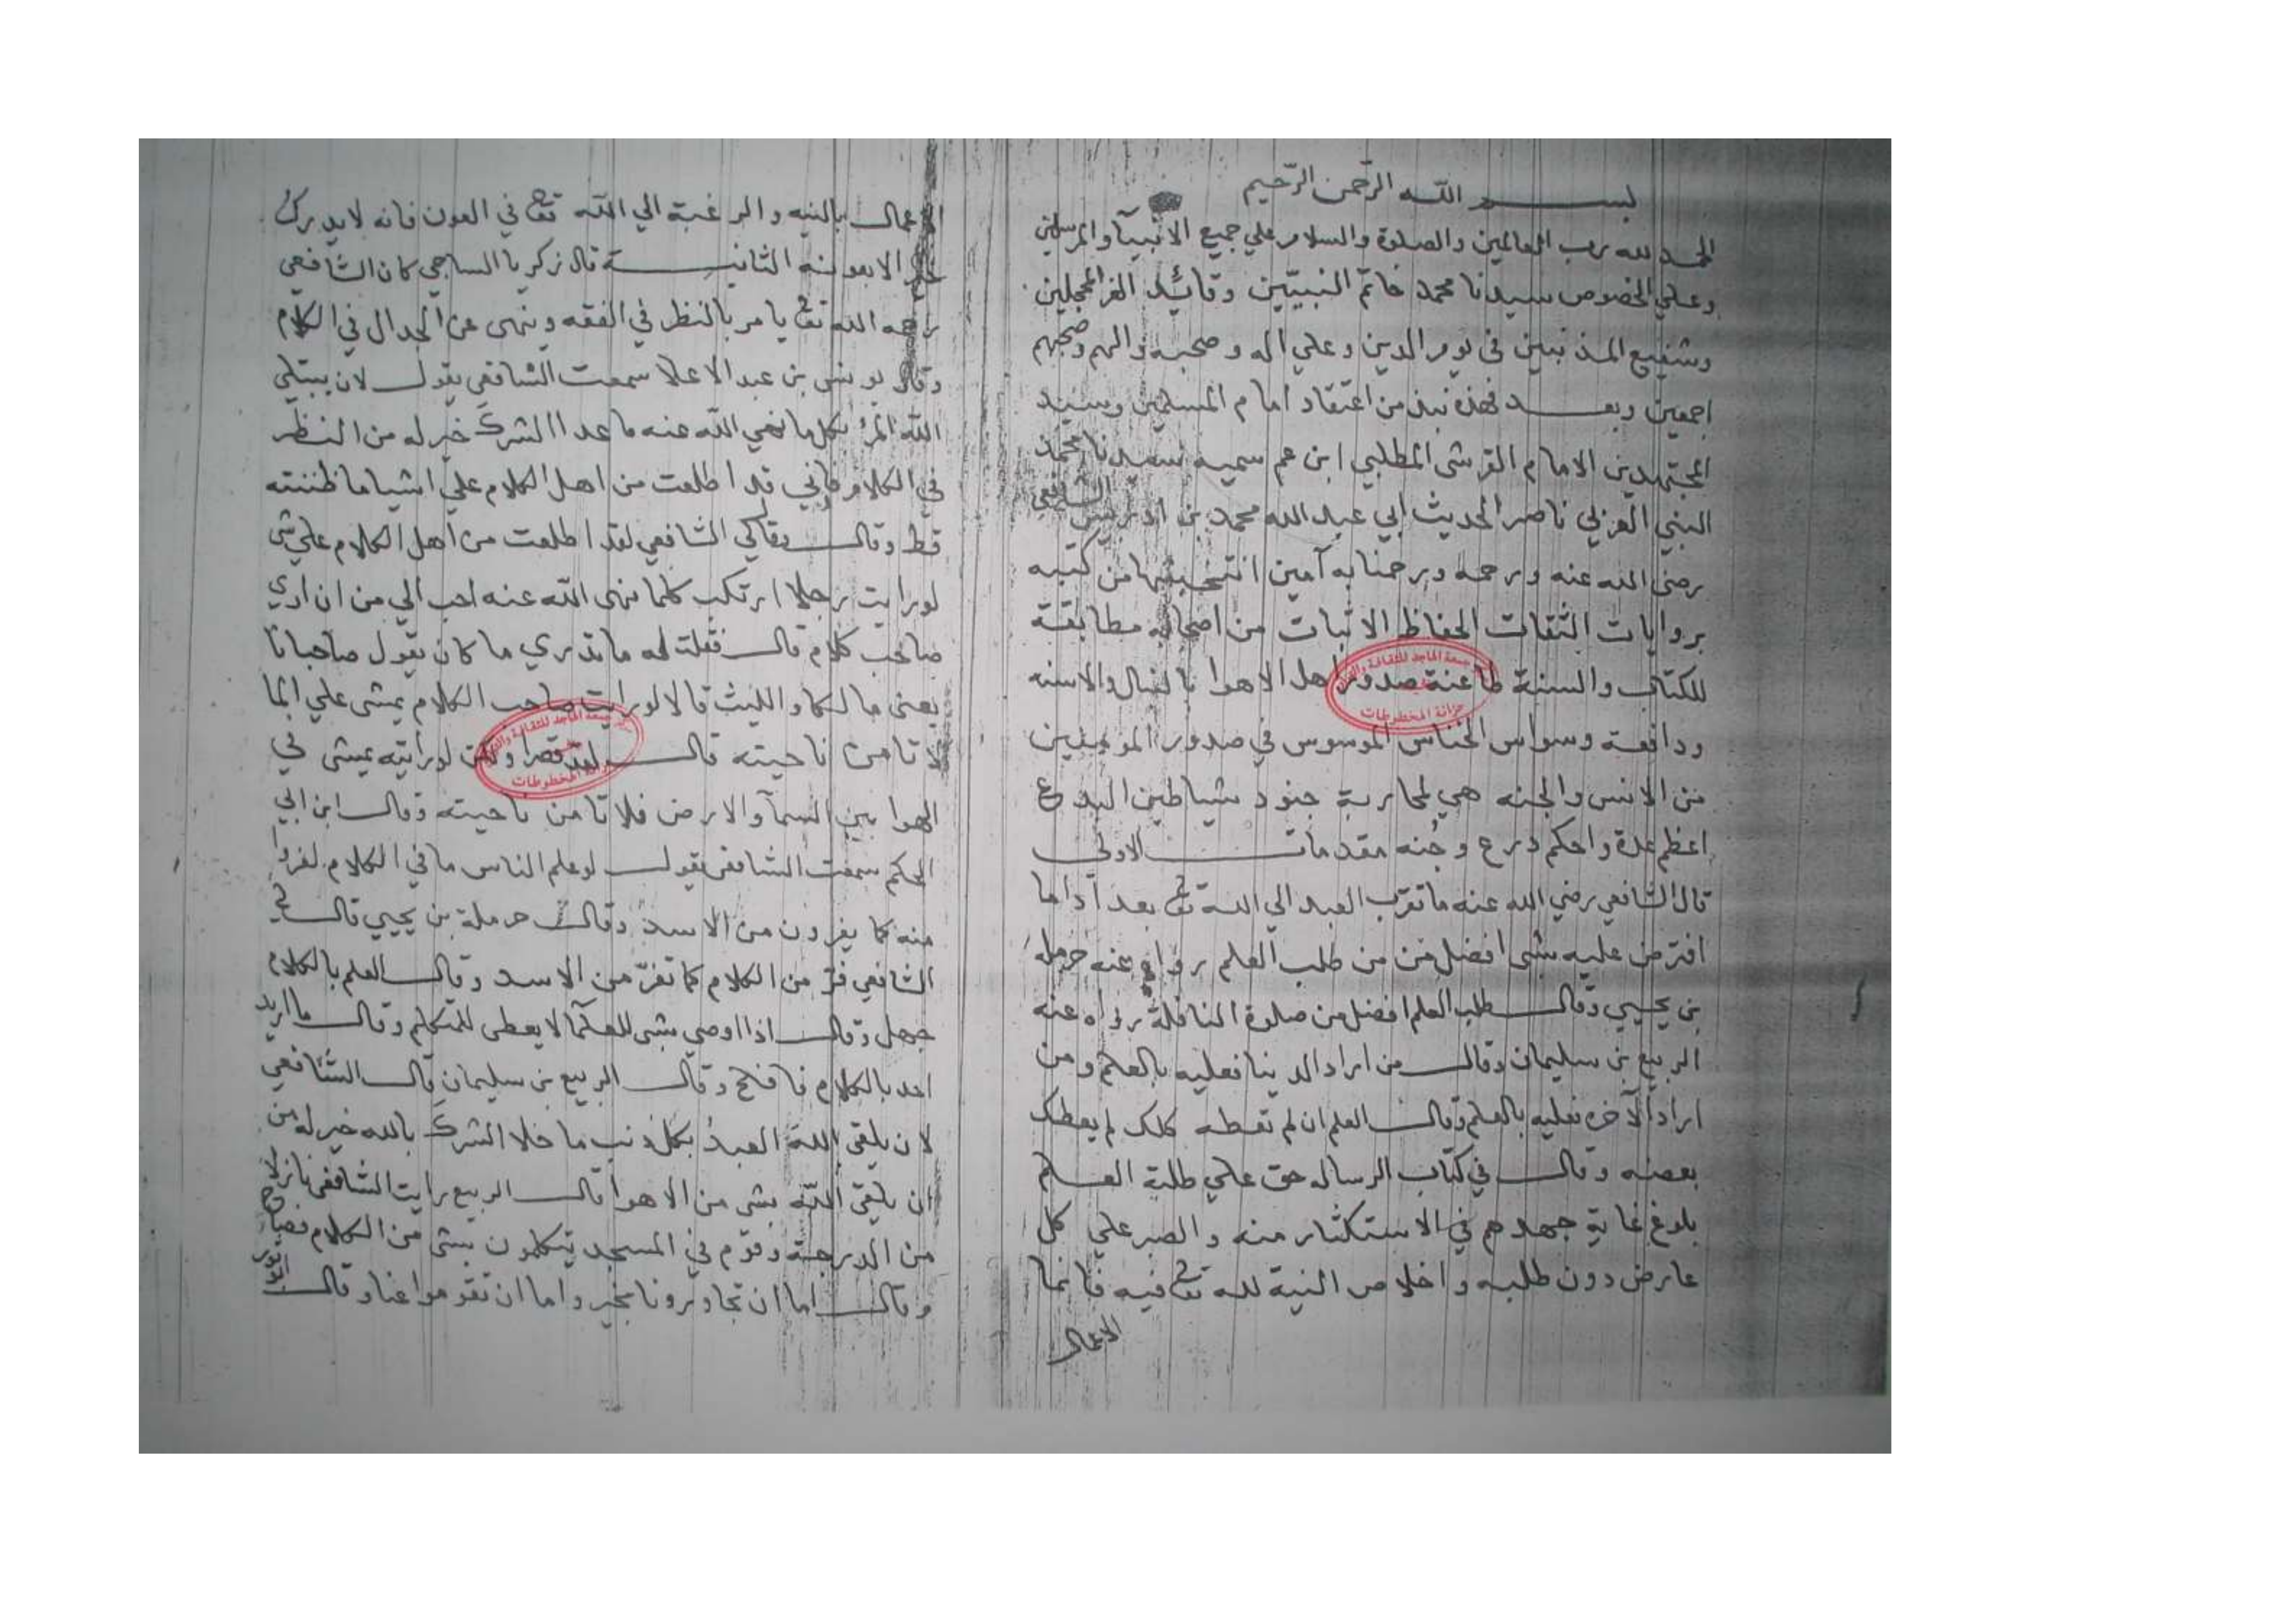 بسم الله الرحمن الرحيم
الحمد لله رب العالمين والصلوة والسلام علي جميع الانبيآ والمرسلين
وعلي الخصوص سيدنا محمد خاتم النبيين وقائد الغر المحجلين
وشفيع المذنبين في يوم الدين وعلي اله وصحبه والهم وصحبهم
اجمعين وبعد فهذه نبذ من اعتقاد امام المسلمين وسيد
المجتهدين الامام القرشي المطلبي ابن عم سميه سيدنا محمد
النبي العربي ناصر الحديث ابي عبد الله محمد بن ادريس الشافعي
رضي الله عنه ورحمه ورحمنا به آمين انتخبتها من كتبه
بروايات الثقات الحفاظ الاثبات من اصحابه مطابقة
للكتاب والسنة طاعنة صدور اهل الاهوا بالنبال والاسنه
ودافعة وسواس الخناس الموسوس في صدور المومنين
من الانس والجنه هي لمحاربة جنود شياطين البدع
اعظم عدة واحكم درع وجنه مقدمات الاولي
قال الشافعي رضي الله عنه ما تقرب العبد الي الله تع بعد اداما
افترض عليه بشي افضل من من طلب العلم رواه عنه حرملة
بن يحيي وقال طلب العلم افضل من صلوة النافلة رواه عنه
الربيع بن سليمان وقال من اراد الدنيا فعليه بالعلم ومن
اراد الآخره فعليه بالعلم وقال العلم ان لم تعطه كلك لم يعطك
بعضه وقال في كتاب الرساله حق علي طلبة العلم
بلوغ غاية جهدهم في الاستكثار منه والصبر علي كل
عارض دون طلبه واخلاص النية لله تع فيه فانما
الاعمال
الاعمال بالنيه والرغبة الي الله تع في العون فانه لا يدرك
الا بعونه الثانيـة قال زكريا الساجي كان الشافعي
رحمه الله تع يامر بالنظر في الفقه وينهى عن الجدال في الكلام
وقال يونس بن عبد الاعلا سمعت الشافعي يقول لان يبتلي
الله المرء بكل ما نهي الله عنه ما عدا الشرك خير له من النظر
في الكلام فاني قد اطلعت من اهل الكلام علي اشيا ما ظننته
قط وقال وقال لي الشافعي لقد اطلعت من اهل الكلام علي شي
لو رايت رجلا ارتكب كلما نهى الله عنه احب الي من ان اري
صاحب كلام قال فقلت له ما تدري ما كان يقول صاحبانا
يعني مالكا والليث قالا لو رايت صاحب الكلام يمشي علي الما
لا تامن ناحيته قال لقد قصرا ولكن لو رأيته يمشي في
الهوا بين السمآ والارض فلا تامن ناحيته وقال ابن ابي
الحكم سمعت الشافعي يقول لو علم الناس ما في الكلام لفروا
منه كما يفرون من الاسد وقال حرملة بن يحيي قال لي
الشافعي فر من الكلام كما تفر من الاسد وقال العلم بالكلام
جهل وقال اذا اوصي بشي للعلمآ لا يعطى للمتكلم وقال ما اريد
احد بالكلام فافلح وقال الربيع بن سليمان قال الشافعي
لان يلقي الله العبد بكل ذنب ما خلا الشرك بالله خير له من
ان يلقي الله بشي من الاهوا قال الربيع رايت الشافعي نازلا
من الدرجة وقوم في المسجد يتكلمون بشي من الكلام فصاح
وقال اما ان تجاورونا بخير واما ان تقوموا عنا وقال
جمعة الماجد للثقافة والتراث
خزانة المخطوطات
جمعة الماجد للثقافة والتراث
خزانة المخطوطات